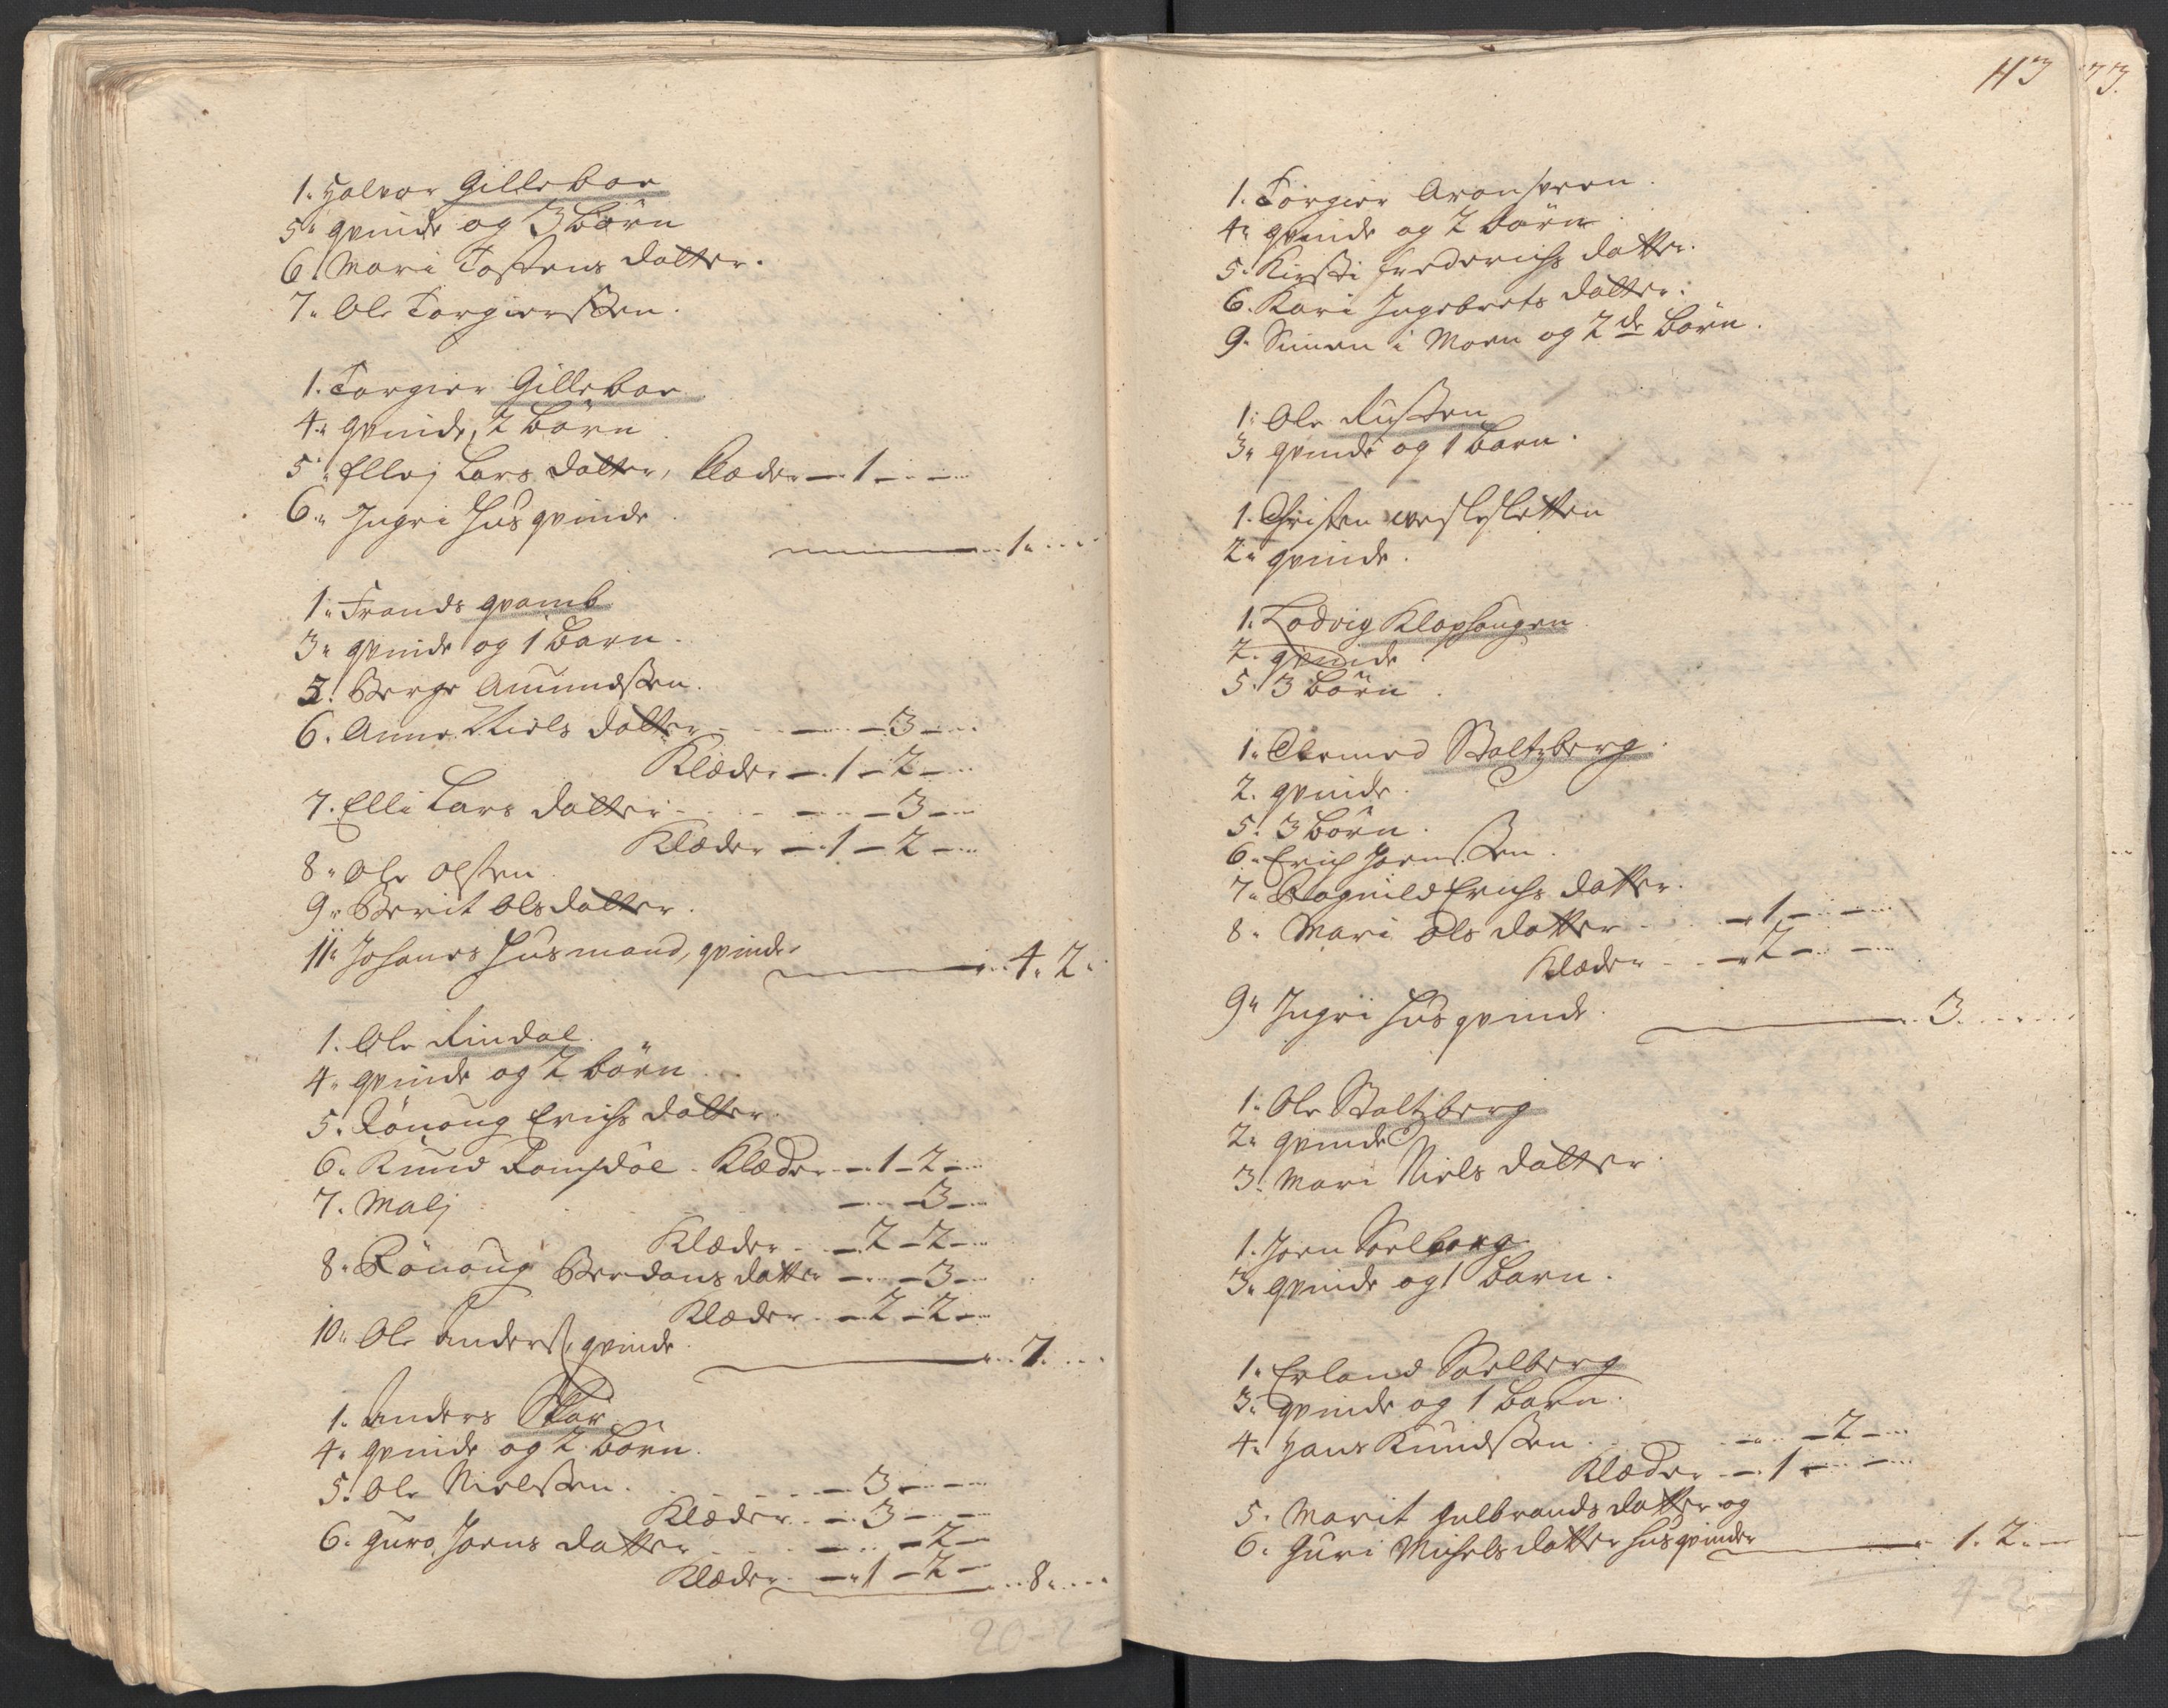 1. Halvor Gillebor
5. qvinde og 3 börn
6. Mari Tostens datter.
7. Ole Torgiersßen.
1. Torgier Gillebor
4. qvinde, 2 börn
5. Elloj Lars datter, Klæder — 1 —
6. Ingri Husqvinde
1.
1. Frands qvamb
3. qvinde og 1 barn.
5. Berge Amundßen.
6. Anne Niels datter — 3 —
Klæder — 1 — 2 —
7. Elli Lars datter — 3 —
Klæder — 1 — 2 —
8. Ole Olßen
9. Berit Olsdatter.
11. Johanes Husmand, qvinde
4. 2.
1. Ole Rindal.
4. qvinde og 2 börn
5. Rönoug Erichs datter.
6. Knud Romsdöl. Klæder — 1 — 2 —
7. Malj — 3 —
Klæder — 2 — 2 —
8. Rönoug Berdons datter — 3 —
Klæder — 2 — 2 —
10. Ole Anderß, qvinde.
7.
1. Anders Skar.
4. qvinde og 2 börn.
5. Ole Nielßen. — 3 —
Klæder — 3 —
6. Guro Joens datter — 2 —
Klæder — 1 — 2 —
8.
20-2
113 73.
1. Torgier Aronsveen.
4. qvinde og 2 börn
5. Kirsti Frederichs datter.
6. Kari Ingebrets datter.
9. Simen i Moen og 2de börn.
1. Ole Rusten
3. qvinde og 1 barn.
1. Christen Veslesletten
2. qvinde.
1. Lodvig Klophougen
2. qvinde
5. 3 börn
1. Clemed Baltzberg.
2. qvinde.
5. 3 börn.
6. Erich Joenßen.
7. Ragnild Erichs datter.
8. Mari Ols datter — 1 —
Klæder — 2 —
9. Ingri Husqvinde.
3.
1. Ole Baltzberg
2. qvinde
3. Mari Niels datter
1. Joen Soelberg.
3. qvinde og 1 barn.
1. Erland Soelberg
3. qvinde og 1 barn.
4. Hans Knudßen — 2 —
Klæder — 1 —
5. Marit Gulbrands datter og
6. Guri Michels datter husqvinder
1. 2.
4-2